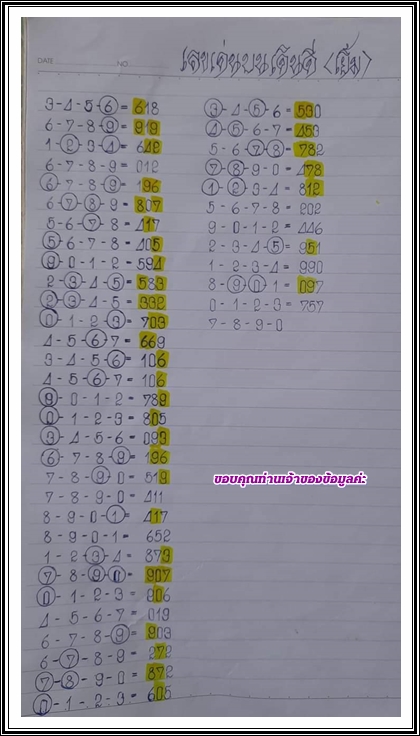 DATE NO
เลขเด่นบนเต็งดี (เอ็ม)
3-4-5-6 = 618
6-7-8-9 = 919
1-2-3-4 = 642
6-7-8-9 = 012
6-7-8-9 = 196
6-7-8-9 = 807
5-6-7-8 = 417
5-6-7-8 = 405
9-0-1-2 = 594
2-3-4-5 = 583
2-3-4-5 = 332
0-1-2-3 = 703
4-5-6-7 = 669
3-4-5-6 = 106
4-5-6-7 = 106
9-0-1-2 = 789
0-1-2-3 = 805
3-4-5-6 = 093
6-7-8-9 = 196
7-8-9-0 = 519
7-8-9-0 = 411
8-9-0-1 = 417
8-9-0-1 = 652
1-2-3-4 = 873
7-8-9-0 = 907
0-1-2-3 = 906
4-5-6-7 = 019
6-7-8-9 = 903
6-7-8-9 = 272
7-8-9-0 = 872
0-1-2-3 = 605
3-4-5-6 = 530
4-5-6-7 = 453
5-6-7-8 = 782
7-8-9-0 = 478
1-2-3-4 = 812
5-6-7-8 = 202
9-0-1-2 = 446
2-3-4-5 = 951
1-2-3-4 = 990
8-9-0-1 = 097
0-1-2-3 = 757
7-8-9-0
ขอบคุณท่านเจ้าของข้อมูลค่ะ